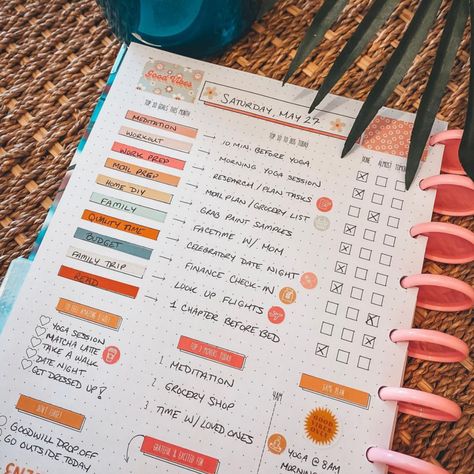 Good Vibes
SATURDAY, MAY 27
TOP 10 GOALS THIS MONTH
TOP 10 TO DO'S TODAY
DONE ALMOST TOMORROW
MEDITATION → 10 MIN. BEFORE YOGA
WORKOUT → MORNING YOGA SESSION
WORK PREP → RESEARCH / PLAN TASKS
MEAL PREP → MEAL PLAN / GROCERY LIST
HOME DIY → GRAB PAINT SAMPLES
FAMILY → FACETIME W/ MOM
QUALITY TIME → CELEBRATORY DATE NIGHT
BUDGET → FINANCE CHECK-IN
FAMILY TRIP → LOOK UP FLIGHTS
READ → 1 CHAPTER BEFORE BED
TO FEEL AMAZING I WILL
YOGA SESSION
MATCHA LATTE
TAKE A WALK
DATE NIGHT
GET DRESSED UP!
TOP 3 PRIORITIES TODAY
1. MEDITATION
2. GROCERY SHOP
3. TIME W/ LOVED ONES
DON'T FORGET
GOODWILL DROP OFF
GO OUTSIDE TODAY
GRATEFUL & EXCITED FOR
GAME PLAN
AM
YOGA @ 8AM
MORNING